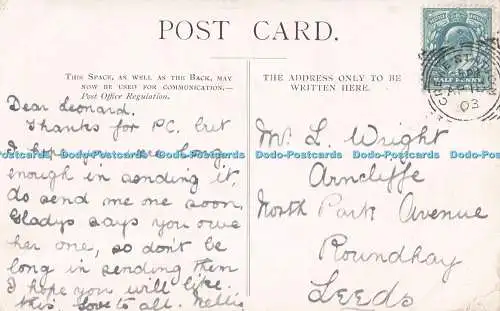 POST CARD.
THIS SPACE, AS WELL AS THE BACK, MAY
NOW BE USED FOR COMMUNICATION.—
Post Office Regulation.
THE ADDRESS ONLY TO BE
WRITTEN HERE.
HALF PENNY
03
Dear Leonard.
Thanks for P.C.
I
long
enough in sending it,
do send me one soon
Gladys says you owe
her one, so don't be
long in sending them
I hope you will like
this. Love to all. Nellie
Mr L. Wright
Arncliffe
North Park Avenue
Roundhay
Leeds
Ods and Docs Postcards Odds and Docs Postcards